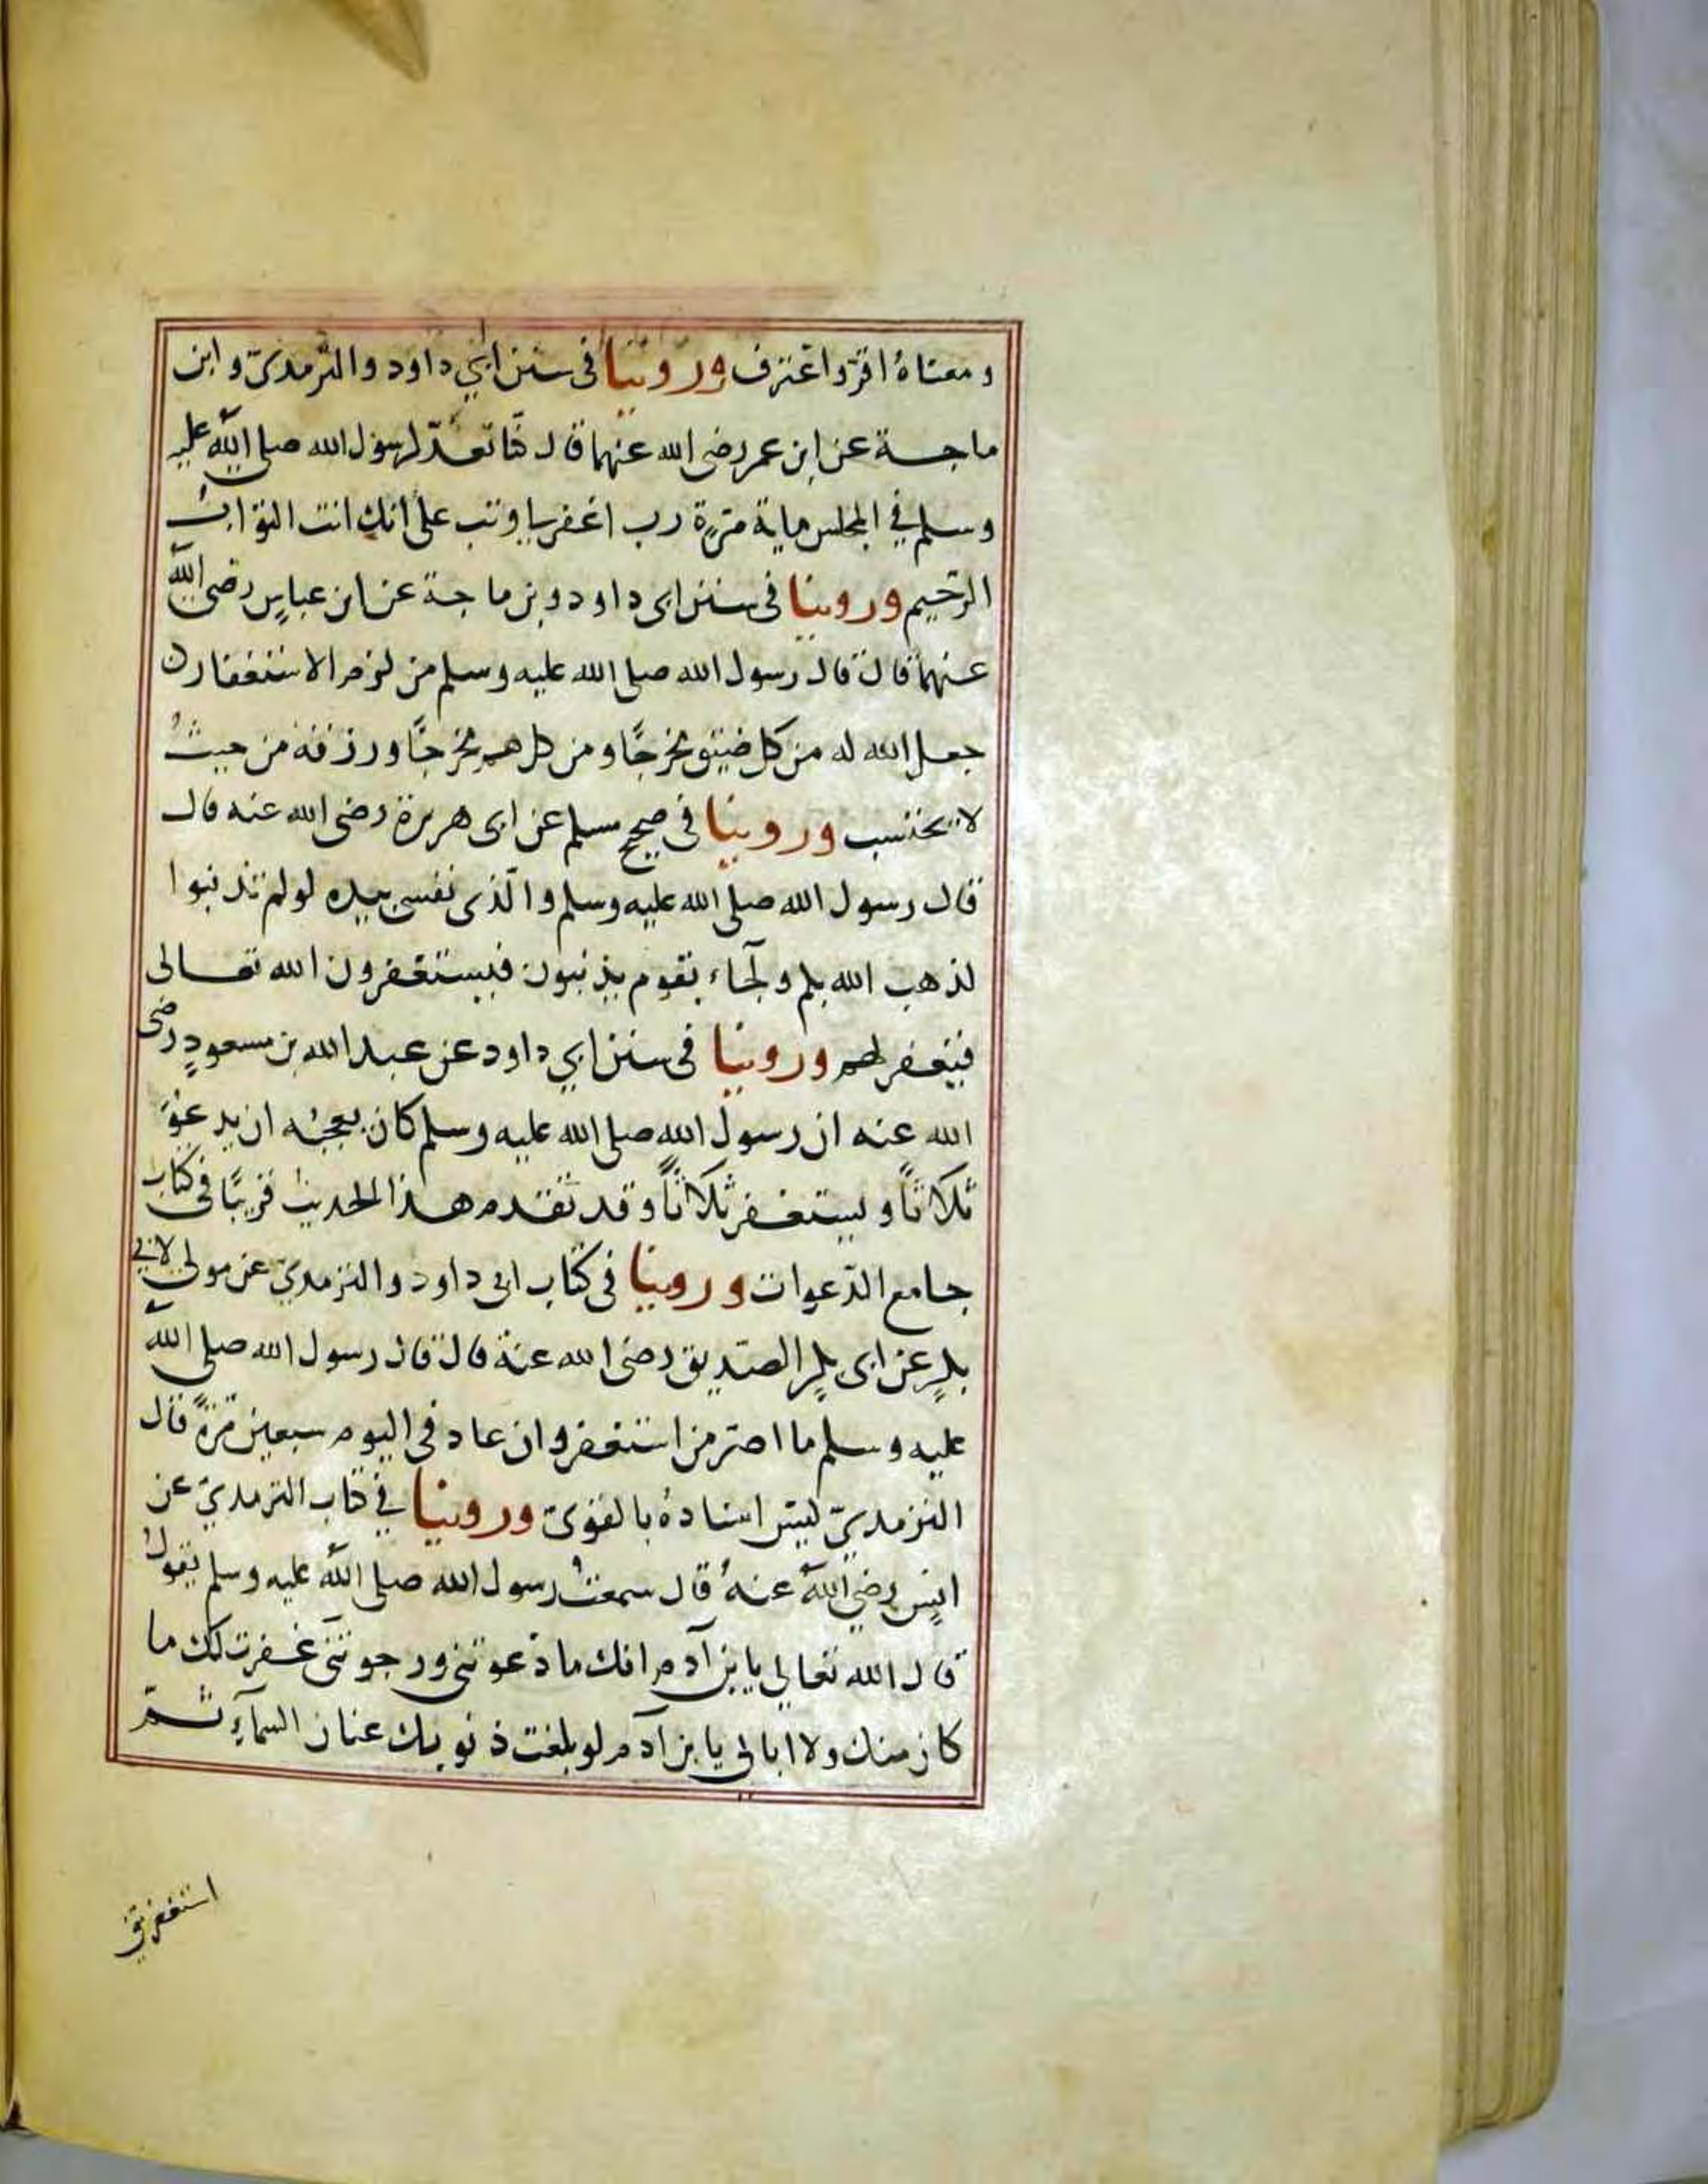 ومعناهُ اقرّ واعترف وروينا فى سنن ابي داود والترمذىّ وابن
ماجة عن ابن عمر رضى الله عنهما قال كنّا نعدّ لرسول الله صلى الله عليه
وسلم في المجلس ماية مرّة رب اغفر لي وتب علىّ انك انت التوابُ
الرّحيم وروينا فى سنن ابى داود وبن ماجة عن ابن عباسٍ رضى الله
عنهما قال قال رسول الله صلى الله عليه وسلم من لزم الاستغفار
جعل الله له من كل ضيق مخرجًا ومن كل هم مخرجًا ورزقه من حيثُ
لا يحتسب وروينا فى صحيح مسلم عن ابى هريرة رضى الله عنه قال
قال رسول الله صلى الله عليه وسلم والّذى نفسى بيده لو لم تذنبوا
لذهب الله بكم ولجآء بقوم يذنبون فيستغفرون الله تعالى
فيغفر لهم وروينا فى سنن ابي داود عن عبد الله بن مسعودٍ رضى
الله عنه ان رسول الله صلى الله عليه وسلم كان يعجبُه ان يدعوَ
ثلاثاً ويستغفر ثلاثاً وقد تقدم هذا الحديث قريبًا فى كتاب
جامع الدّعوات وروينا فى كتاب ابى داود والترمذىّ عن مولى لابي
بكرٍ عن ابى بكرٍ الصّديق رضى الله عنه قال قال رسول الله صلى الله
عليه وسلم ما اصرّ من استغفر وان عاد فى اليوم سبعين مّرةً قال
الترمذىّ ليس اسنادهُ بالقوىّ وروينا في كتاب الترمذىّ عن
انسٍ رضي اللهُ عنهُ قال سمعتُ رسول الله صلى اللهُ عليه وسلم يقولُ
قال الله تعالى يا بن آدم انك ما دعوتنى ورجوتنى غفرت لك ما
كان منك ولا ابالى يا بن آدم لو بلغت ذنوبك عنان السمآءِ ثمّ
استغفرتنى